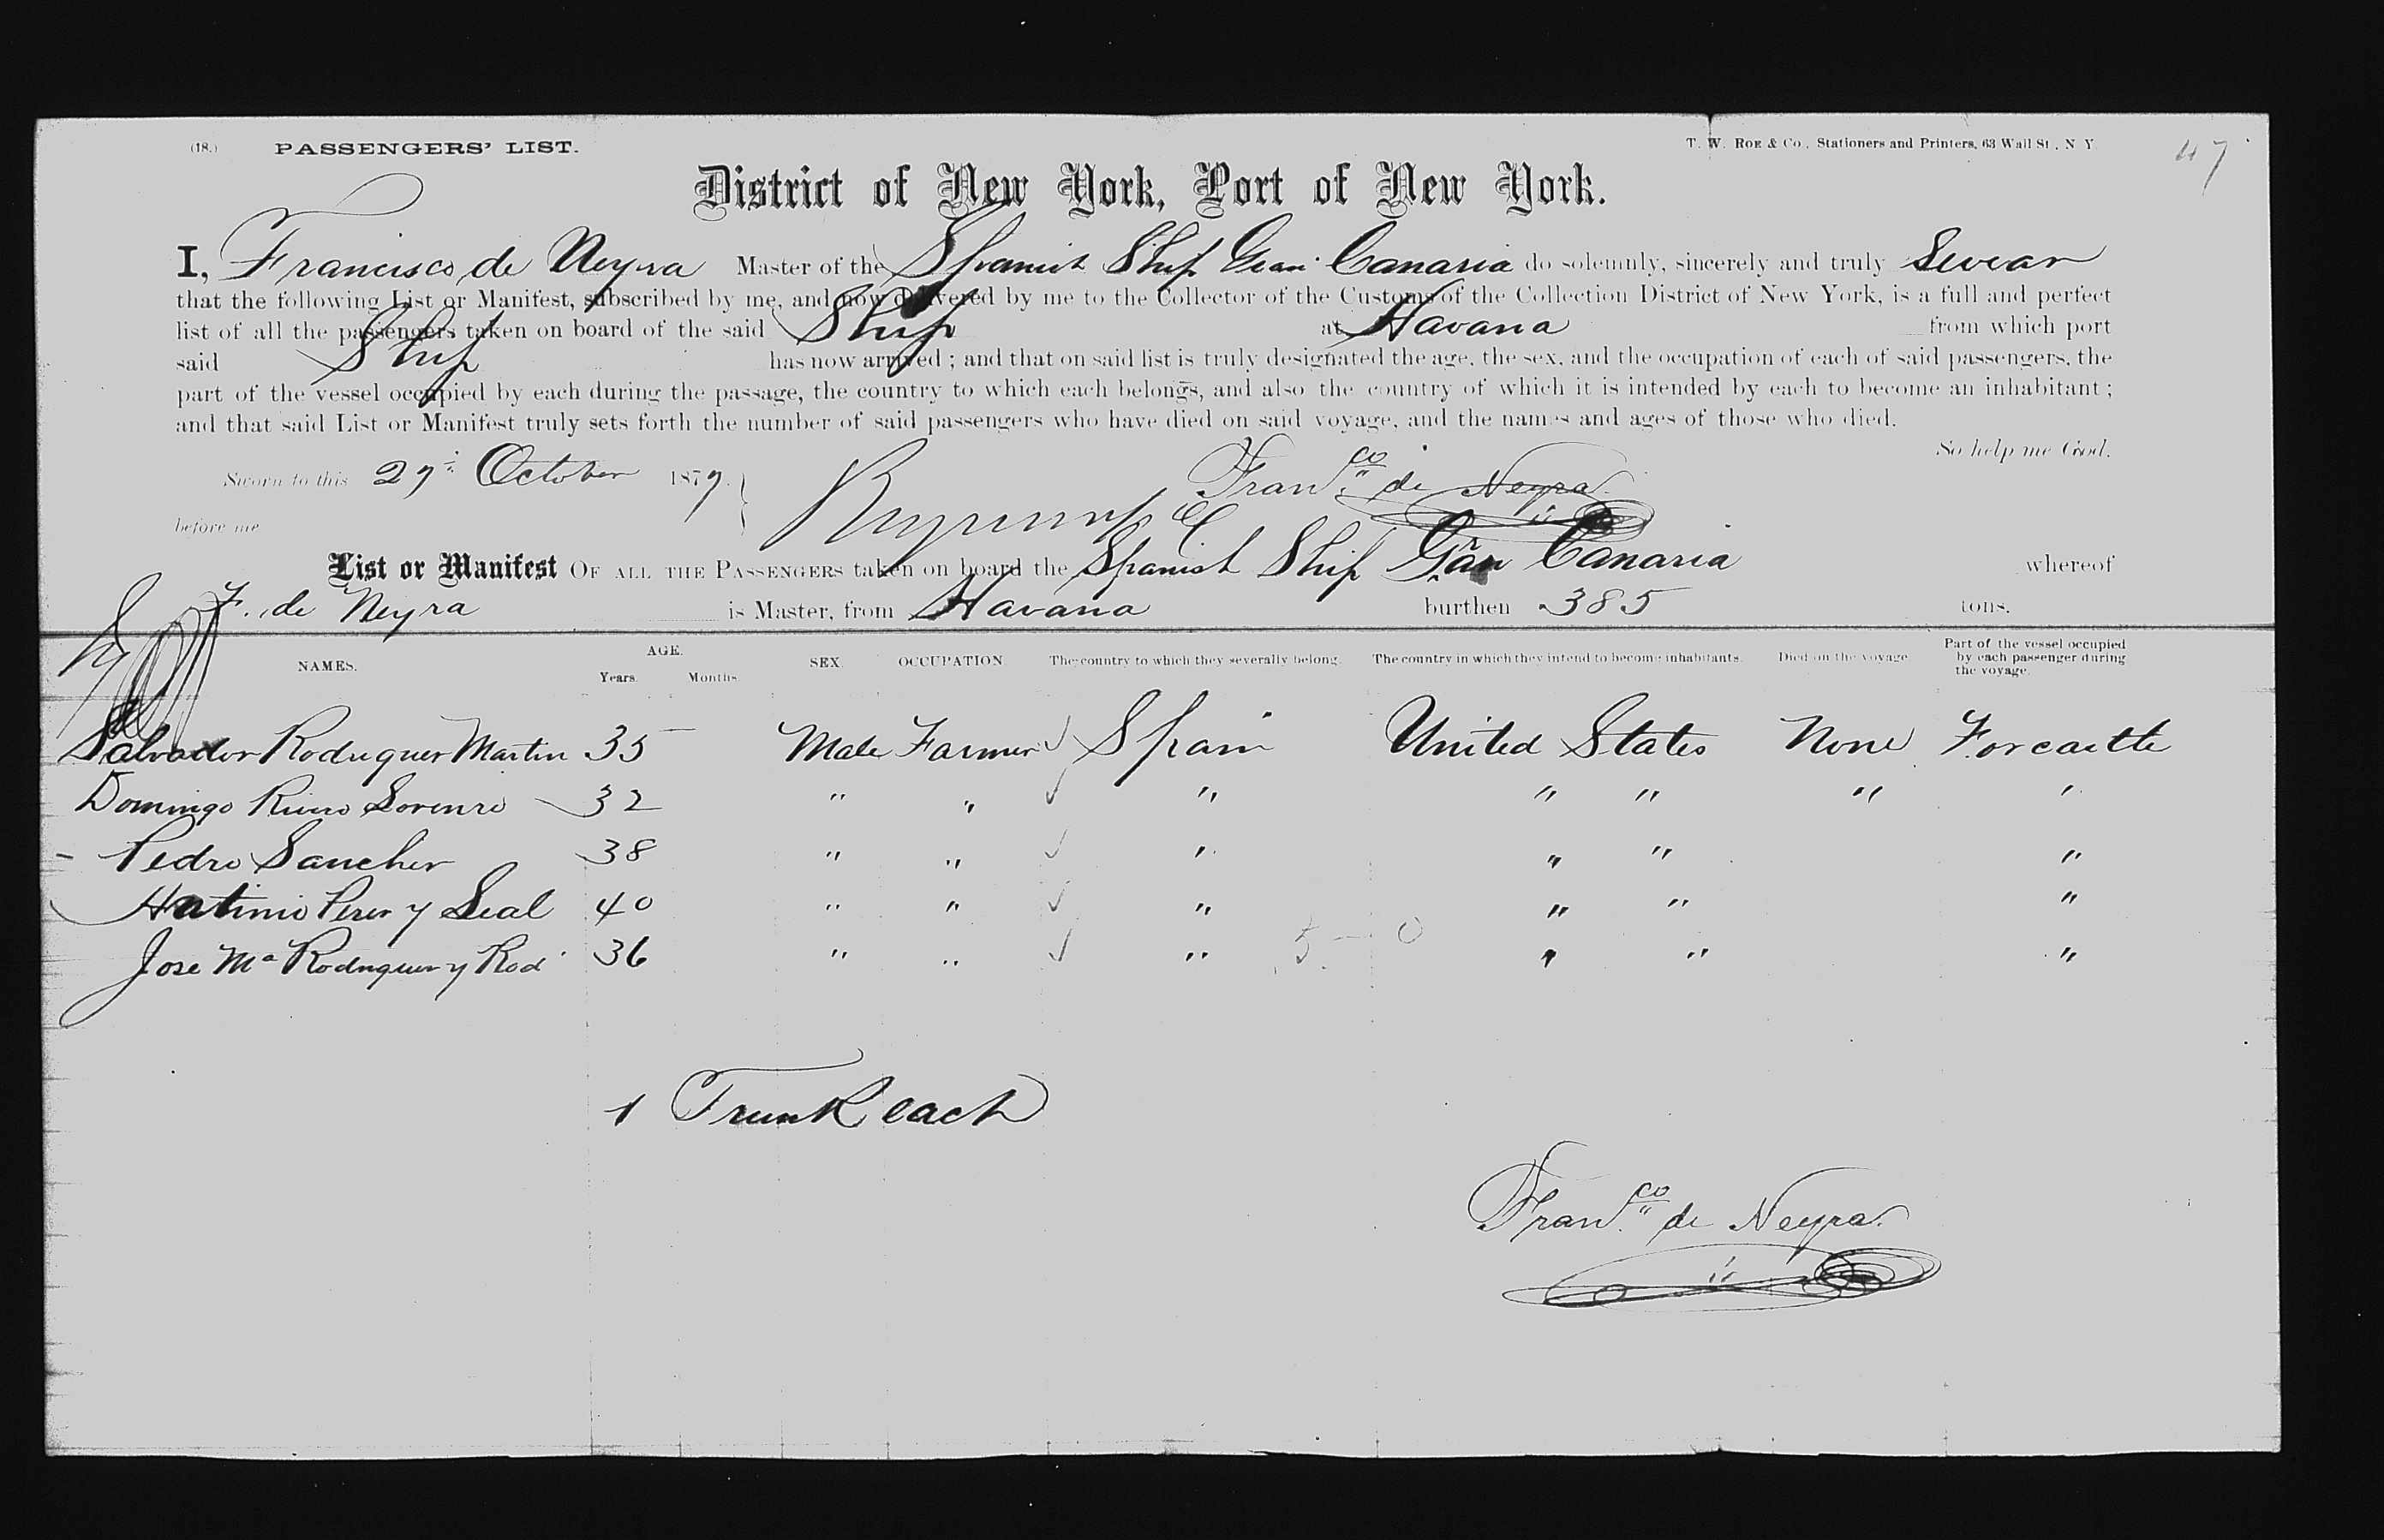 (18.) PASSENGERS' LIST. T. W. ROE & Co., Stationers and Printers, 63 Wall St., N Y. 47
District of New York, Port of New York.
I, Francisco de Neyra Master of the Spanish Ship Gran Canaria do solemnly, sincerely and truly Swear
that the following List or Manifest, subscribed by me, and now delivered by me to the Collector of the Customs of the Collection District of New York, is a full and perfect
list of all the passengers taken on board of the said Ship at Havana from which port
said Ship has now arrived; and that on said list is truly designated the age, the sex, and the occupation of each of said passengers, the
part of the vessel occupied by each during the passage, the country to which each belongs, and also the country of which it is intended by each to become an inhabitant;
and that said List or Manifest truly sets forth the number of said passengers who have died on said voyage, and the names and ages of those who died.
So help me God.
Sworn to this 27 October 1879. Fran.co de Neyra
before me
List or Manifest OF ALL THE PASSENGERS taken on board the Spanish Ship Gran Canaria whereof
F. de Neyra is Master, from Havana burthen 385 tons.
NAMES. AGE. Years. Months. SEX. OCCUPATION. The country to which they severally belong. The country in which they intend to become inhabitants. Died on the voyage. Part of the vessel occupied by each passenger during the voyage.
Salvador Rodriguez Martin 35 Male Farmer Spain United States None Forcastle
Domingo Rivero Lorenzo 32 " " " " " " "
Pedro Sanchez 38 " " " " " "
Antonio Perez y Leal 40 " " " " " "
Jose Ma Rodriguez y Rod 36 " " " 5 - 0 " " "
1 Trunk each
Fran.co de Neyra